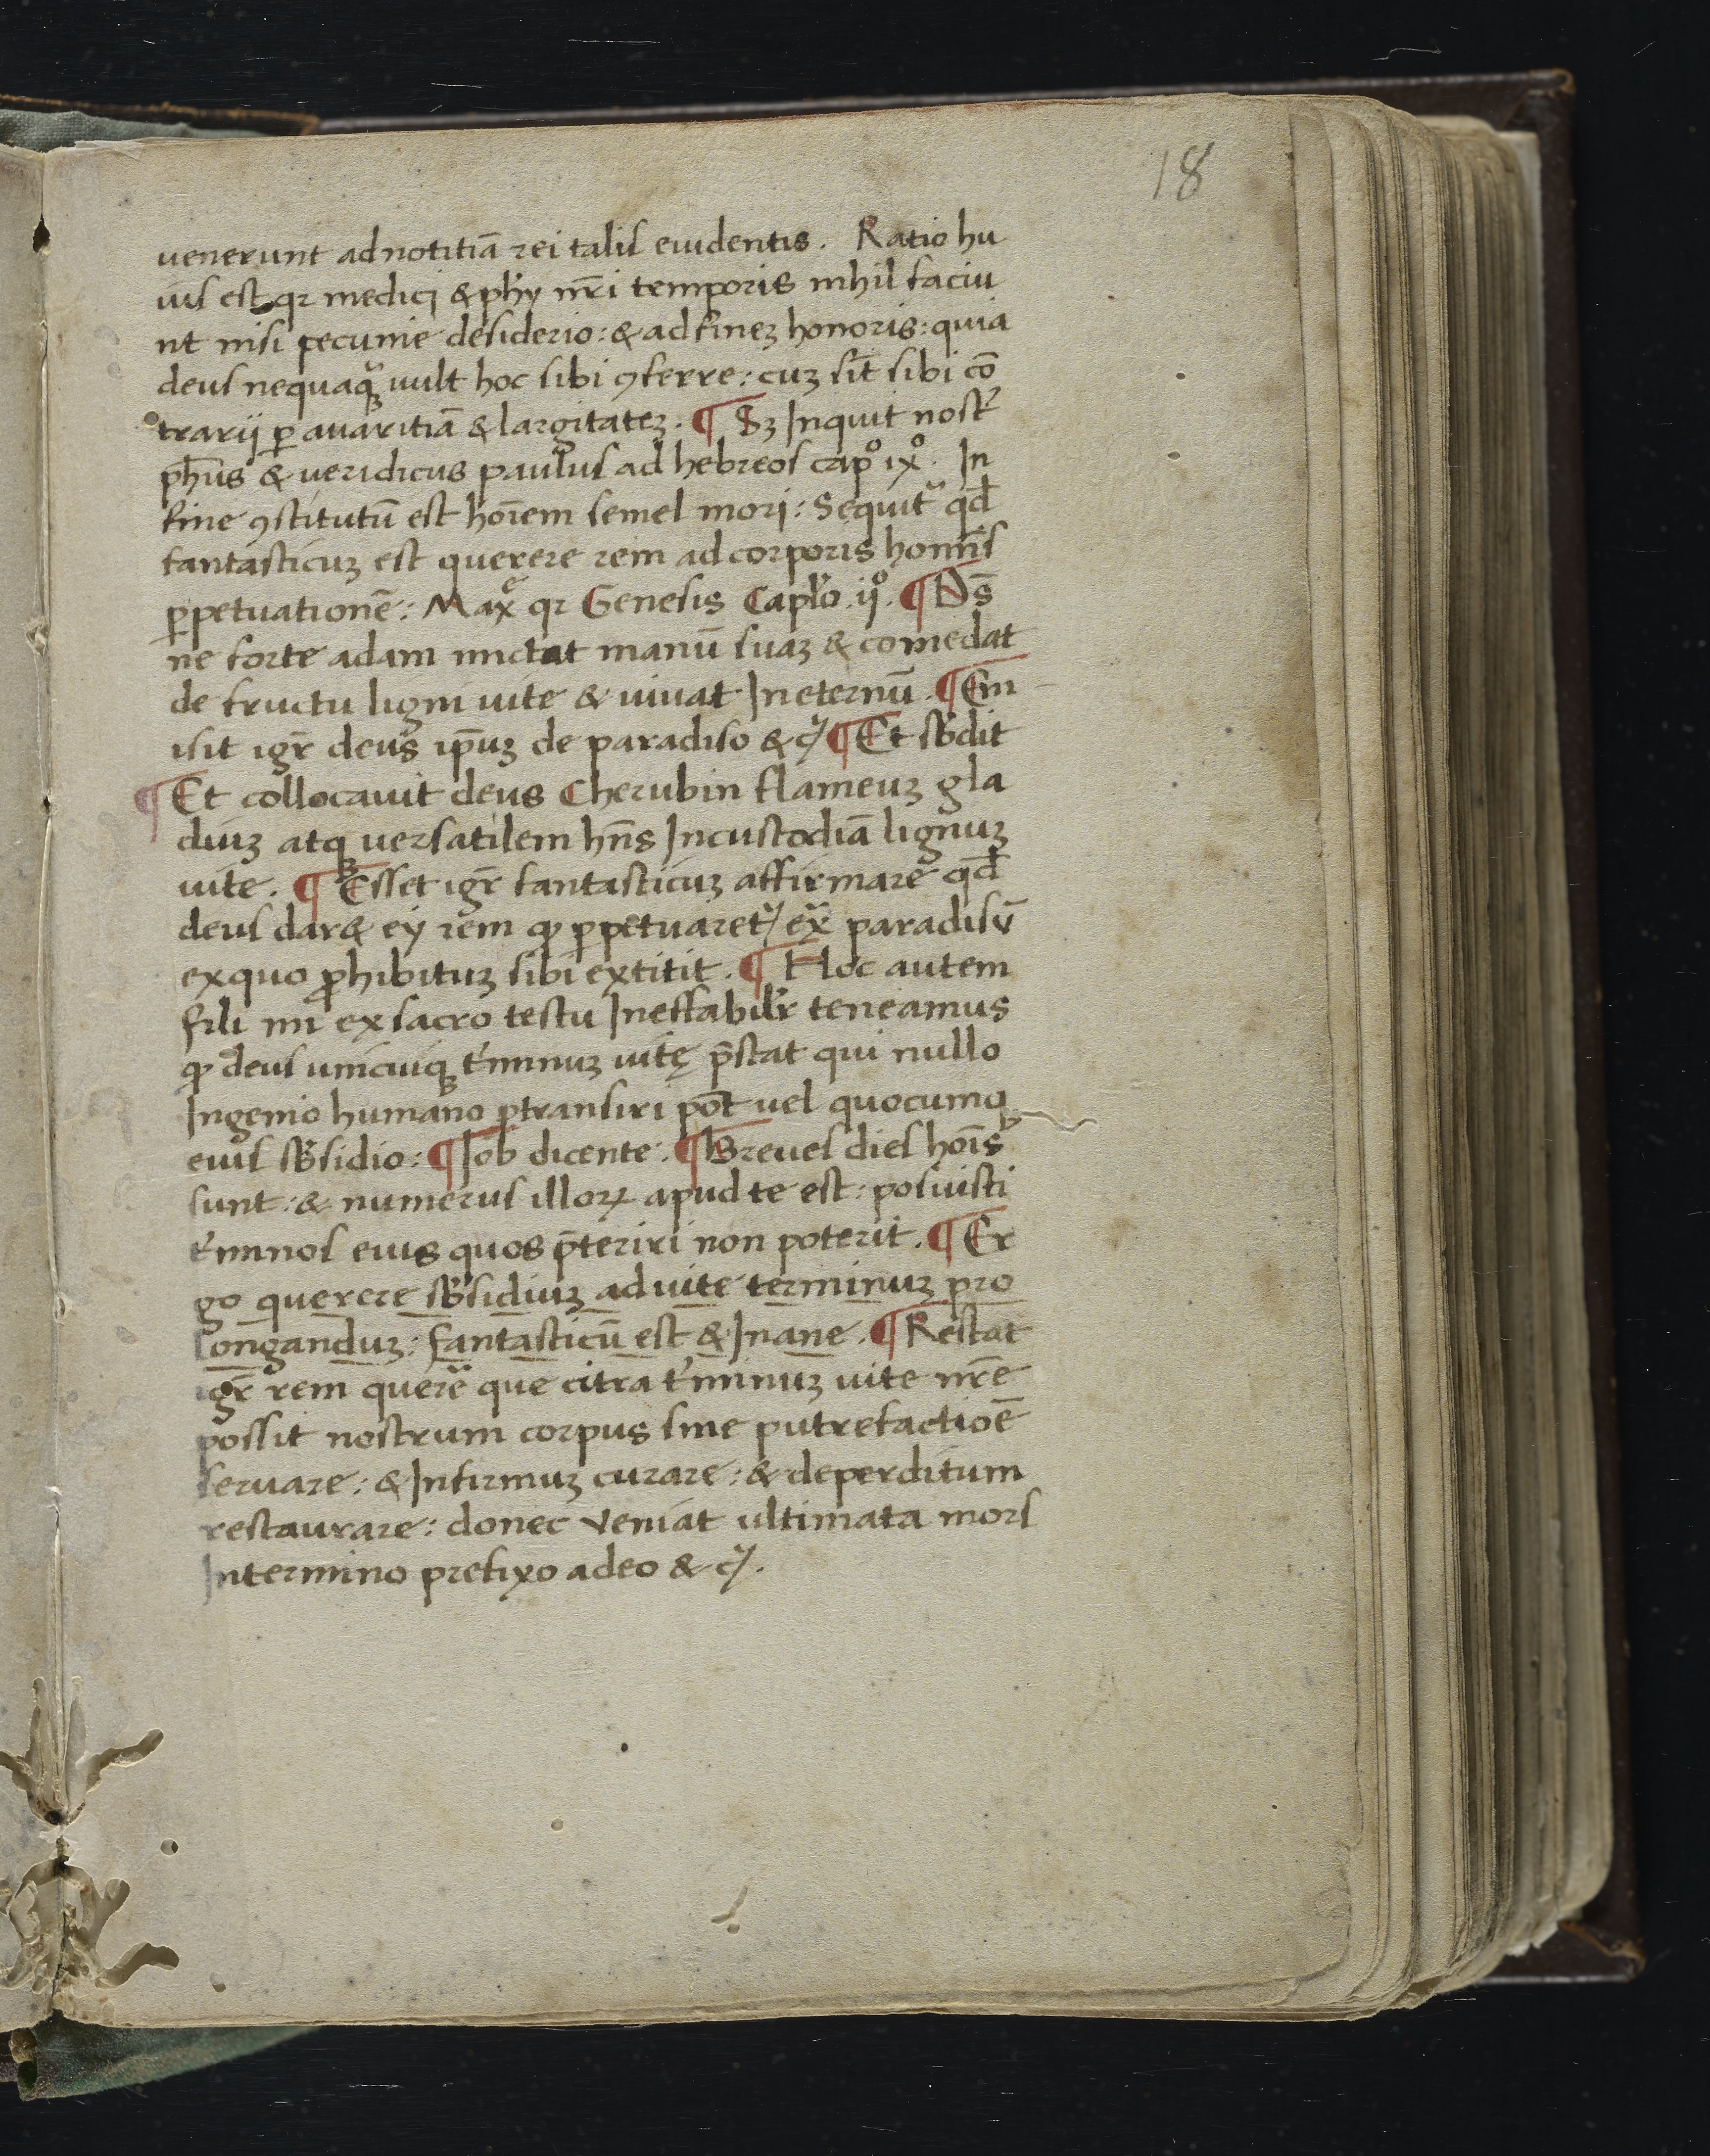 18
venerunt ad notitiā rei talis euidentis. Ratio hu
ius est qr medici & phy nr̄i temporis nihil faciu
nt nisi pecunie desiderio: & ad finez honoris: quia
deus nequaqz uult hoc sibi ꝯferre: cuz sīt sibi cō
trarij ꝑ auaritiā & largitatez. ¶ Sz Inquit nost̓
ph̄us & ueridicus paulus ad hebreos capº ixº. In
fine ꝯstitutū est hoīem semel mori: Sequit᷑ qd̄
fantasticuz est querere rem ad corporis hominis
ꝑpetuationē: Maxe qr Genesis Capl̓o .ijº. ¶ Ds̄
ne forte adam mictat manū suaz & comedat
de fructu ligni uite & uiuat In eternū. ¶ Em
isit igr̄ deus ip̄uz de paradiso & cꝭ ¶ Et sb̓dit
¶ Et collocauit deus Cherubin flameuz gla
diuz atqꝫ uersatilem hn̄s In custodiā lignuz
uite. ¶ Esset igr̄ fantasticuz affirmare qd̄
deus dar& eij rem ꝙ ꝑpetuaretꝭ ex̄ paradisū
ex quo ꝓhibituz sibi extitit. ¶ Hoc autem
fili mi ex sacro testu Ineffabil̓r teneamus
ꝙ deus unicuiqꝫ t̓minuz uitę p̄stat qui nullo
Ingenio humano ꝑtransiri pōt uel quocumqꝫ
eius sb̓sidio: ¶ Iob dicente: ¶ Breues dies hoīs
sunt: & numerus illoꝝ apud te est: posuisti
t̓minos eius quos p̄teriri non poterit. ¶ Er
go querere sb̓sidiuz ad uite terminuz pro
longanduz: fantasticū est & Inane. ¶ Restat
igr̄ rem querē que citra t̓minuz uite nr̄e
possit nostrum corpus sine putrefactioē
seruare: & Infirmuz curare: & deperditum
restaurare: donec veniat ultimata mors
In termino prefixo a deo & cꝭ.